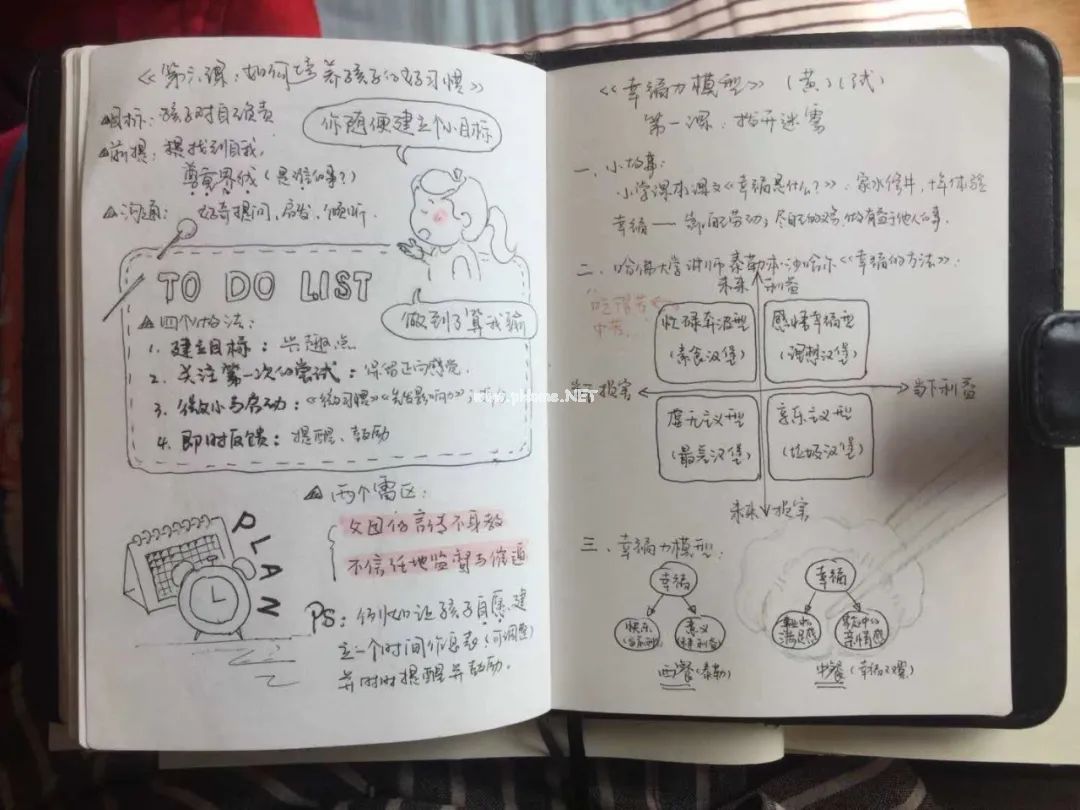 《第六课:如何培养孩子的好习惯》
目标:孩子对自己负责
你随便建立个小目标
前提:提找到自我,
尊重界线(是谁的事?)
沟通:好奇提问、启发、倾听.
TO DO LIST
做到了算我输
四个办法:
1. 建立目标:兴趣点
2. 关注第一次的尝试:保留正向感觉.
3. 微小与启动:《微习惯》《影响力》
4. 即时反馈:提醒、鼓励
两个雷区:
父母的言传不身教
不信任地监督与催逼
PLAN
PS:例如让孩子自愿建
立一个时间作息表(可调整)
并时时提醒并鼓励.
《幸福力模型》(黄)(试)
第一课:拨开迷雾
一、小故事:
小学课本课文《幸福是什么?》:
幸福——靠自己劳动;尽自己的义务,做有益于他人的事.
二、哈佛大学讲师泰勒本沙哈尔《幸福的方法》:
未来利益
忙碌奔波型
(素食汉堡)
感悟幸福型
(理想汉堡)
当下损害
当下利益
虚无主义型
(最差汉堡)
享乐主义型
(垃圾汉堡)
未来损害
三、幸福力模型:
幸福
快乐
意义
西餐(泰勒)
幸福
满足感
亲情感
中餐
kiyo.pixnet.NET